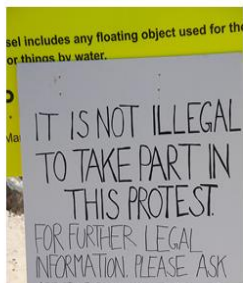 sel includes any floating object used for the
or things by water.
IT IS NOT ILLEGAL
TO TAKE PART IN
THIS PROTEST.
FOR FURTHER LEGAL
INFORMATION. PLEASE ASK